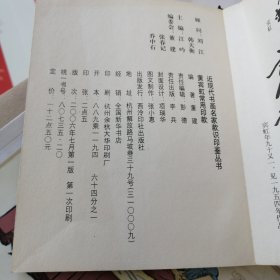 顾问 刘江
韩天衡
主编 江吟
编委会 董建
张春记
乔中石
近现代书画名家款识印鉴丛书
黄宾虹常用印款
编著 董建
责任编辑 彭德
责任出版 李兵
封面设计 项瑞华
图文制作 张小惠
出版发行 西泠印社出版社
地址 杭州解放路马坡巷三十九号(三一〇〇〇九)
经销 全国新华书店
印刷 杭州余杭大华印刷厂
开本 八八九乘一一九四 六十四分之一
印张 二点五
版次 二〇〇六年七月第一版 第一次印刷
统一书号 八〇七三五·二〇
定价 一十二点五〇元